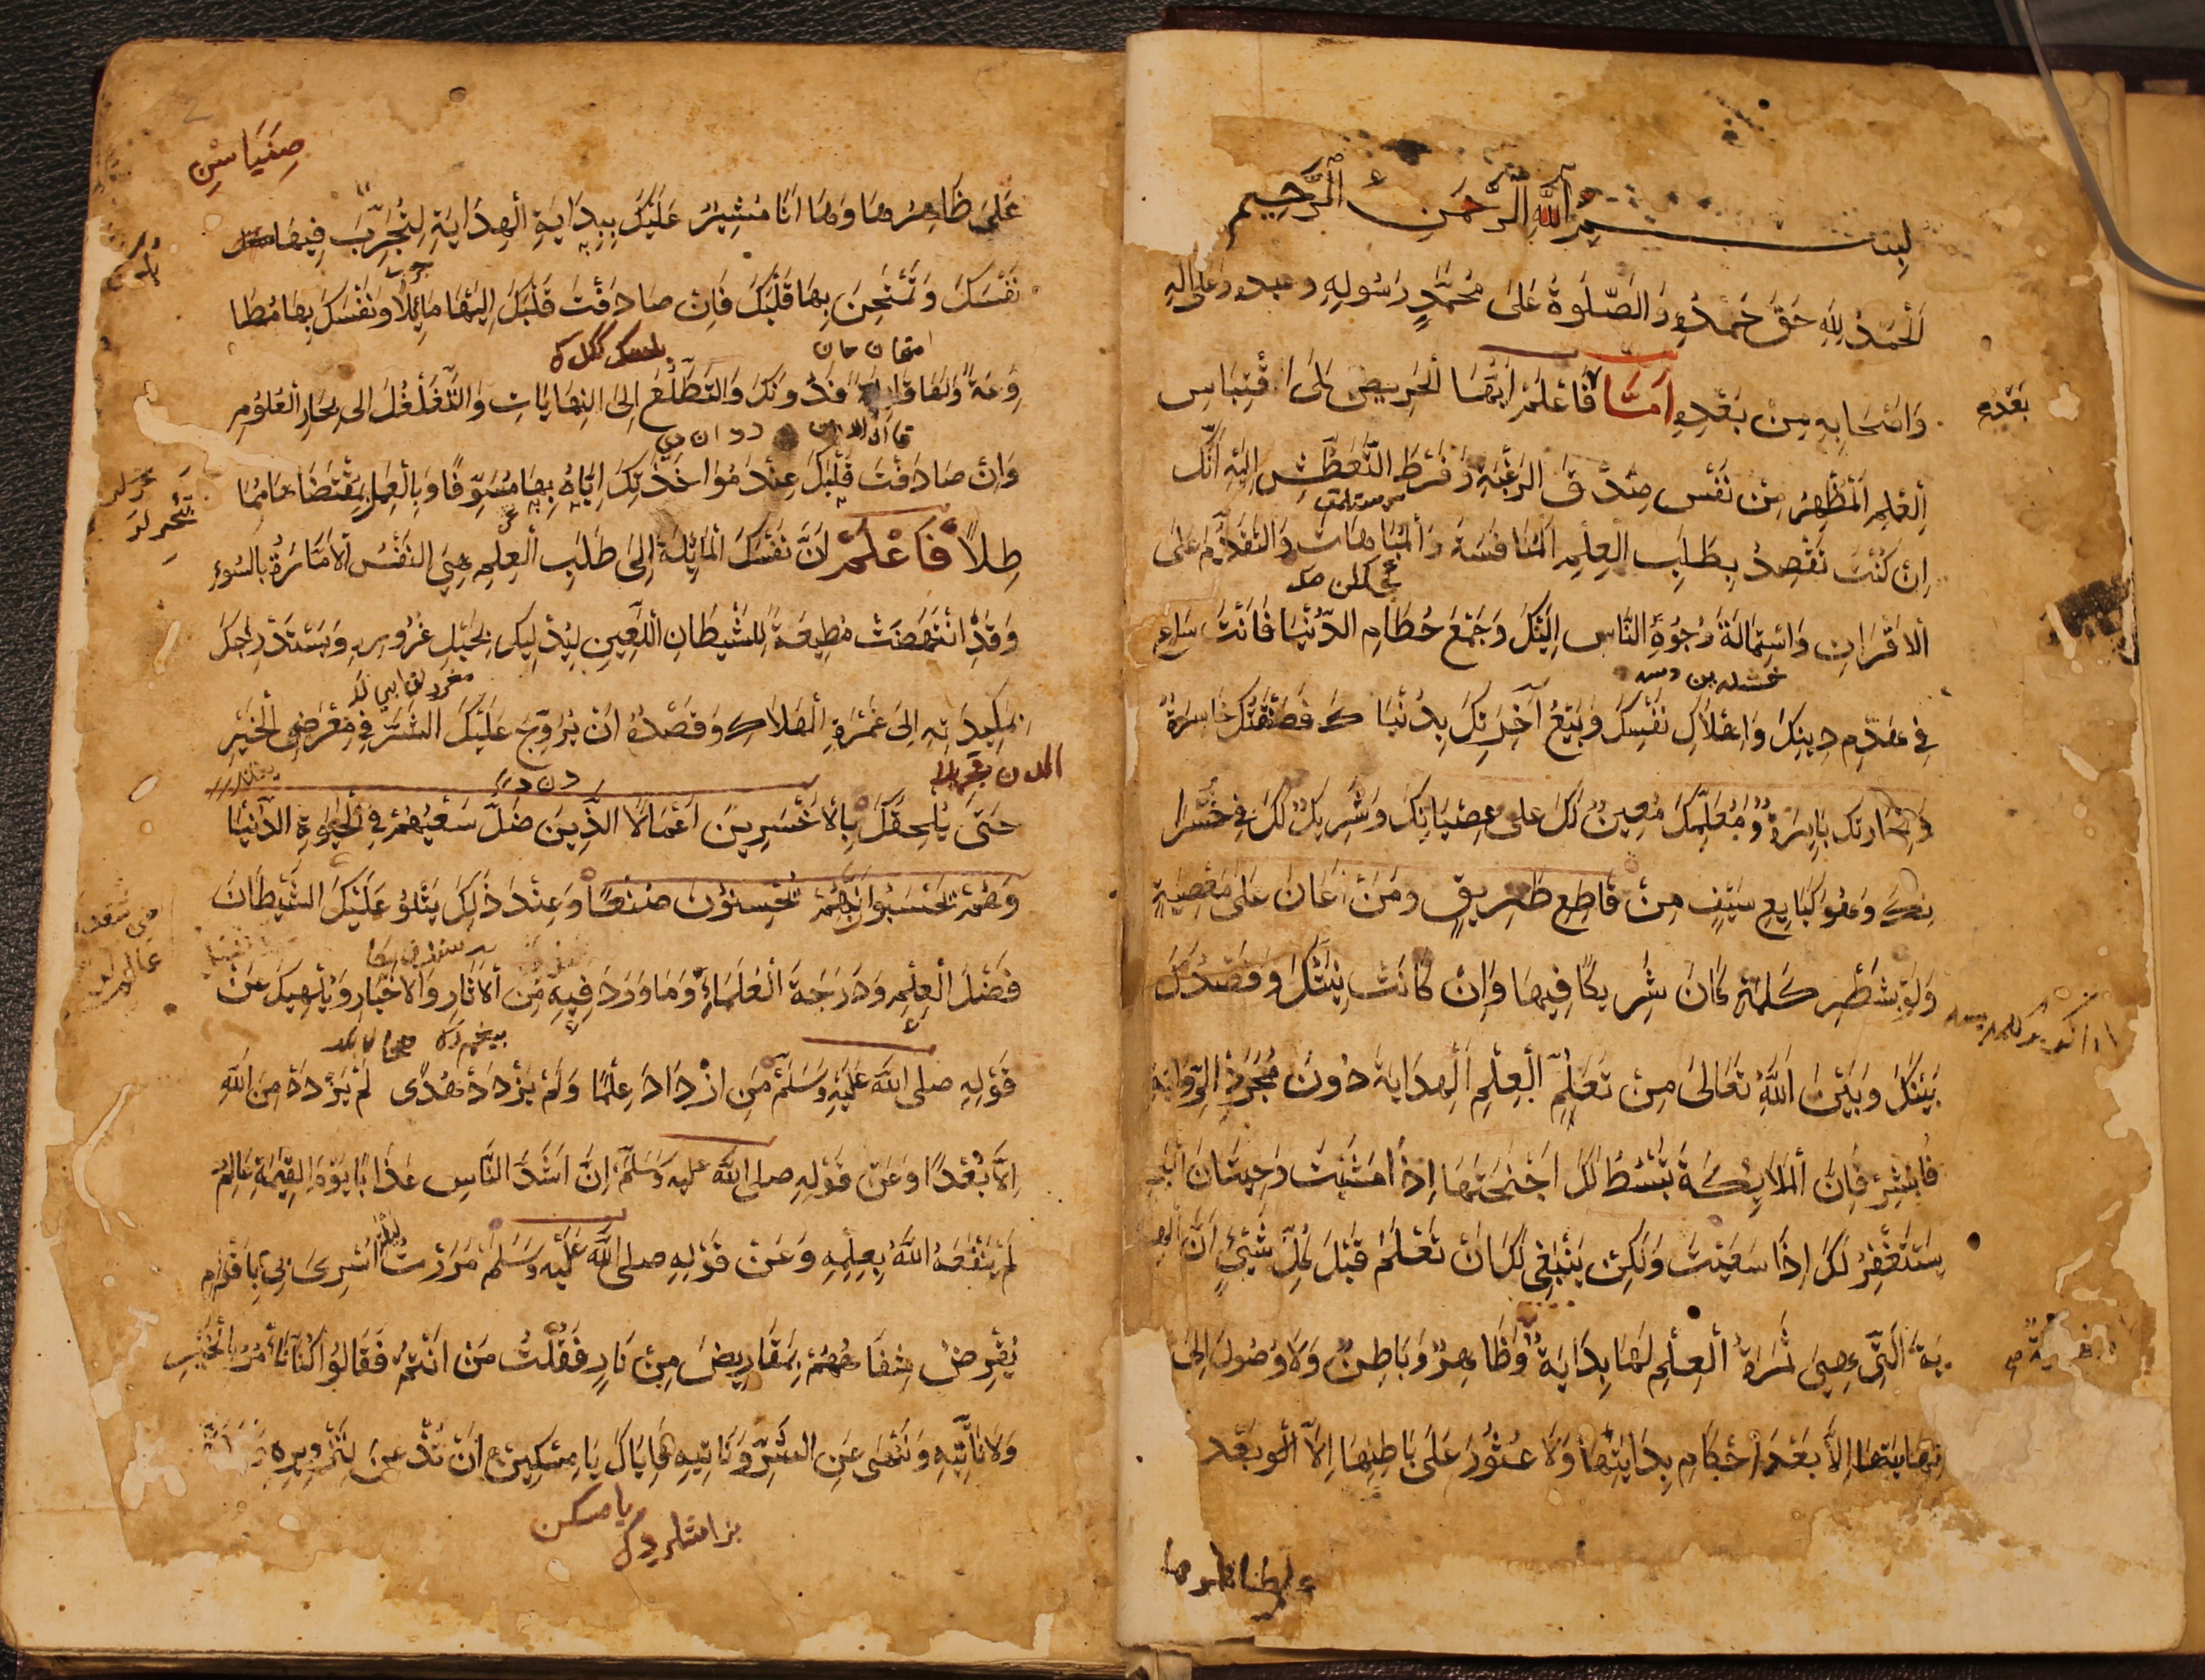 بِسْمِ اللّٰهِ الرَّحْمَنِ الرَّحِيمِ
اَلْحَمْدُ لِلّٰهِ حَقَّ حَمْدِهِ وَالصَّلَوةُ عَلَى مُحَمَّدٍ رَسُولِهِ وعبده وَعلى اله
وَاَصْحَابِهِ مِنْ بَعْدِهِ اَمَّا فَاعْلَمْ اَيُّهَا الْحَرِيصُ عَلَى اقْتِبَاسِ
بَعْدُ
الْعِلْمِ اَلْمُظْهِرُ مِنْ نَفْسِ صِدْقَ الرَغْبَةِ وَفَرْطَ التَّعَطُّشِ اِلَيْهِ اَنَّكَ
اِنْ كُنْتَ تَقْصِدُ بِطَلَبِ الْعِلْمِ اَلْمُنَافَسَةَ وَالْمُبَاهَاتَ وَالتَقَدُّمَ عَلَى
الاَقْرَانِ وَاسْتِمَالَةَ وُجُوهِ النَّاسِ اِلَيْكَ وَجَمْعَ حُطَامِ الدُّنْيَا فَاَنْتَ سَاعٍ
فِى هَدْمِ دِينِكَ وَاِهْلَاكِ نَفْسِكَ وَبَيْعُ آخِرَتِكَ بِدُنْيَا كَ فَصَفْقَتُكَ خَاسِرَةٌ
وَتِجَارتك بَايِرَةٌ وَمُعَلِّمُكَ مُعِينٌ لَكَ على عِصْيَانِكَ وَشَرِيكٌ لَكَ فِى خُسْرَا
نِكَ وَهُوَ كَبَايِعِ سَيْفٍ مِنْ قَاطِعِ طَرِيقٍ ومَنْ اَعَانَ عَلَى مَعْصِيَةٍ
وَلَوْ بِشَطْرِ كَلِمَةٍ كَانَ شَرِيكًا فِيهَا وَاِنْ كَانَتْ نِيَّتُكَ وَقَصْدُكَ
بَيْنَكَ وَبَيْنَ اَللّٰهِ تَعَالَى مِنْ تَعَلُّمِ الْعِلْمِ اَلْهِدَايَةَ دُونَ مُجَرَّدِ الرِّوَايَةِ
فَابْشِرْ فَاِنَّ اَلْمَلَايِكَةَ تَبْسُطُ لَكَ اَجْنِحَتَهَا اِذَا مَشَيْتَ وَحِيتَانَ الْبَحْرِ
يَسْتَغْفِرُ لَكَ اِذَا سَعَيْتَ وَلَكِنْ يَنْبَغِى لَكَ اَنْ تَعْلَمَ قَبْلَ كُلِّ شَيْئٍ اَنَّ الْهِدَا
يَةَ الَّتِى هِىَ ثَمَرَةُ الْعِلْمِ لَهَا بِدَايَةٌ وَظَاهِرٌ وَبَاطِنٌ وَلَا وُصُولَ اِلَى
نِهَايَتِهَا اِلَّا بَعْدَ اَحْكَامِ بِدَايَتِهَا وَلَا عُثُورَ عَلَى بَاطِنِهَا اِلَّا بَعْد
عَلَى ظَاهِرِهَا وَهَا اَنَا مُشِيرٌ عَلَيْكَ بِبِدَايَةِ الْهِدَايَةِ لِتُجَرِّبَ فِيهَا
نَفْسَكَ وَتَمْتَحِنَ بِهَا قَلْبَكَ فَاِنْ صَادَفْتَ قَلْبَكَ اِلَيْهَا مَائِلًا وَنَفْسَكَ بِهَا مُطَا
وِعَةً وَلَهَا قَابِلَةً فَدُونَكَ وَالتَّطَلُّعَ اِلَى النِهَايَاتِ وَالتَّغَلْغُلَ الى بِحَارِ الْعُلُومِ
وَاِنْ صَادَفْتَ قَلْبَكَ عِنْدَ مُوَاخَذَتِكَ اِيَّاهُ بِهَا مُسَوِّفًا وَبِالْعَمَلِ بِمُقْتَضَاهَا مُمَا
طِلاً فَاعْلَمْ اَنَّ نَفْسَكَ الْمَائِلَةَ اِلَى طَلَبِ الْعِلْمِ هِىَ النَفْسُ اَلاَمَّارَةُ بِالسُوءِ
وَقَدْ انْتَهَضَتْ مُطِيعَةً لِلشَّيْطَانِ اللَّعِينِ لِيُدْلِيَكَ بِحَبْلِ غُرُورِهِ وَيَسْتَدْرِجَكَ
بِمَكِيدَتِهِ اِلَى غَمْرَةِ الْهَلَاكِ وَقَصْدُهُ اَنْ يُرَوِّجَ عَلَيْكَ الشَرَّ فِى مَعْرَضِ الْخَيْرِ
حَتَى يُلْحِقَكَ بِالْاَخْسَرِينَ اَعْمَالًا اَلَّذِينَ ضَلَّ سَعْيُهُمْ فِى الْحَيوةِ الدُّنْيَا
وَهُمْ يَحْسَبُونَ اَنَّهُمْ يُحْسِنُونَ صُنْعًا وَعِنْدَ ذَلِكَ يَتْلُو عَلَيْكَ الشَّيْطَانَ
فَضْلَ الْعِلْمِ وَدَرَجَةَ الْعُلَمَاءِ وَمَا وَرَدَ فِيهِ مِنَ اْلاَثَارِ وَالاَخْبَارِ وَيُلْهِيكَ عَنْ
قَوْلِهِ صلى اللّٰه عَلَيْهِ وَسَلَّمَ مَنِ ازْدَادَ عِلْمًا وَلَمْ يَزْدَدْ هُدًى لَمْ يَزْدَدْ مِنَ اللّٰهِ
اِلَّا بُعْدًا وَعَنْ قَوْلِهِ صلى اللّٰه عليه وَسَلَّمَ اِنَّ اَشَدَّ النَّاسِ عَذَابًا يَوْمَ الْقِيمَةِ عَالِمٌ
لَمْ يَنْفَعْهُ اللّٰهُ بِعِلْمِهِ وَعَنْ قَوْلِهِ صلى اللّٰه عَلَيْه وَسَلَّمَ مَرَرْتُ لَيْلَةَ اُسْرِىَ بِى بِاَقْوَامٍ
يُقْرِضُ شِفَاهُهُمْ بِمَقَارِيضَ مِنْ نَارٍ فَقُلْتُ مَنْ اَنْتُمْ فَقَالُوا كُنَّا نَاْمُرُ بِالْخَيْرِ
وَلَا نَاْتِيهِ وَنَنْهَى عَنِ الشَرِّ وَنَاتِيهِ فَاِيَّاكَ يَا مِسْكِينُ اَنْ تُذْعِنَ لِتَزْوِيرِهِ
يا مسكين